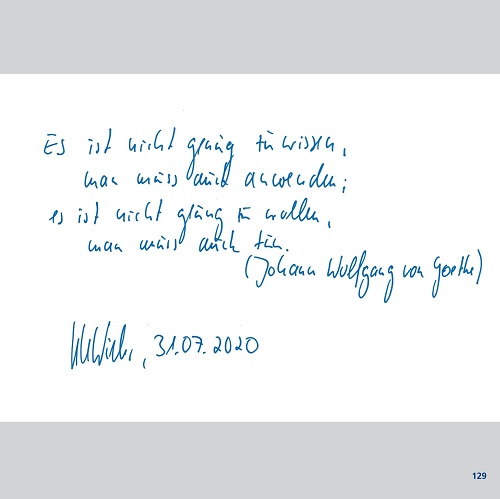 Es ist nicht genug zu wissen,
man muss auch anwenden;
es ist nicht genug zu wollen,
man muss auch tun.
(Johann Wolfgang von Goethe)
, 31.07.2020
129